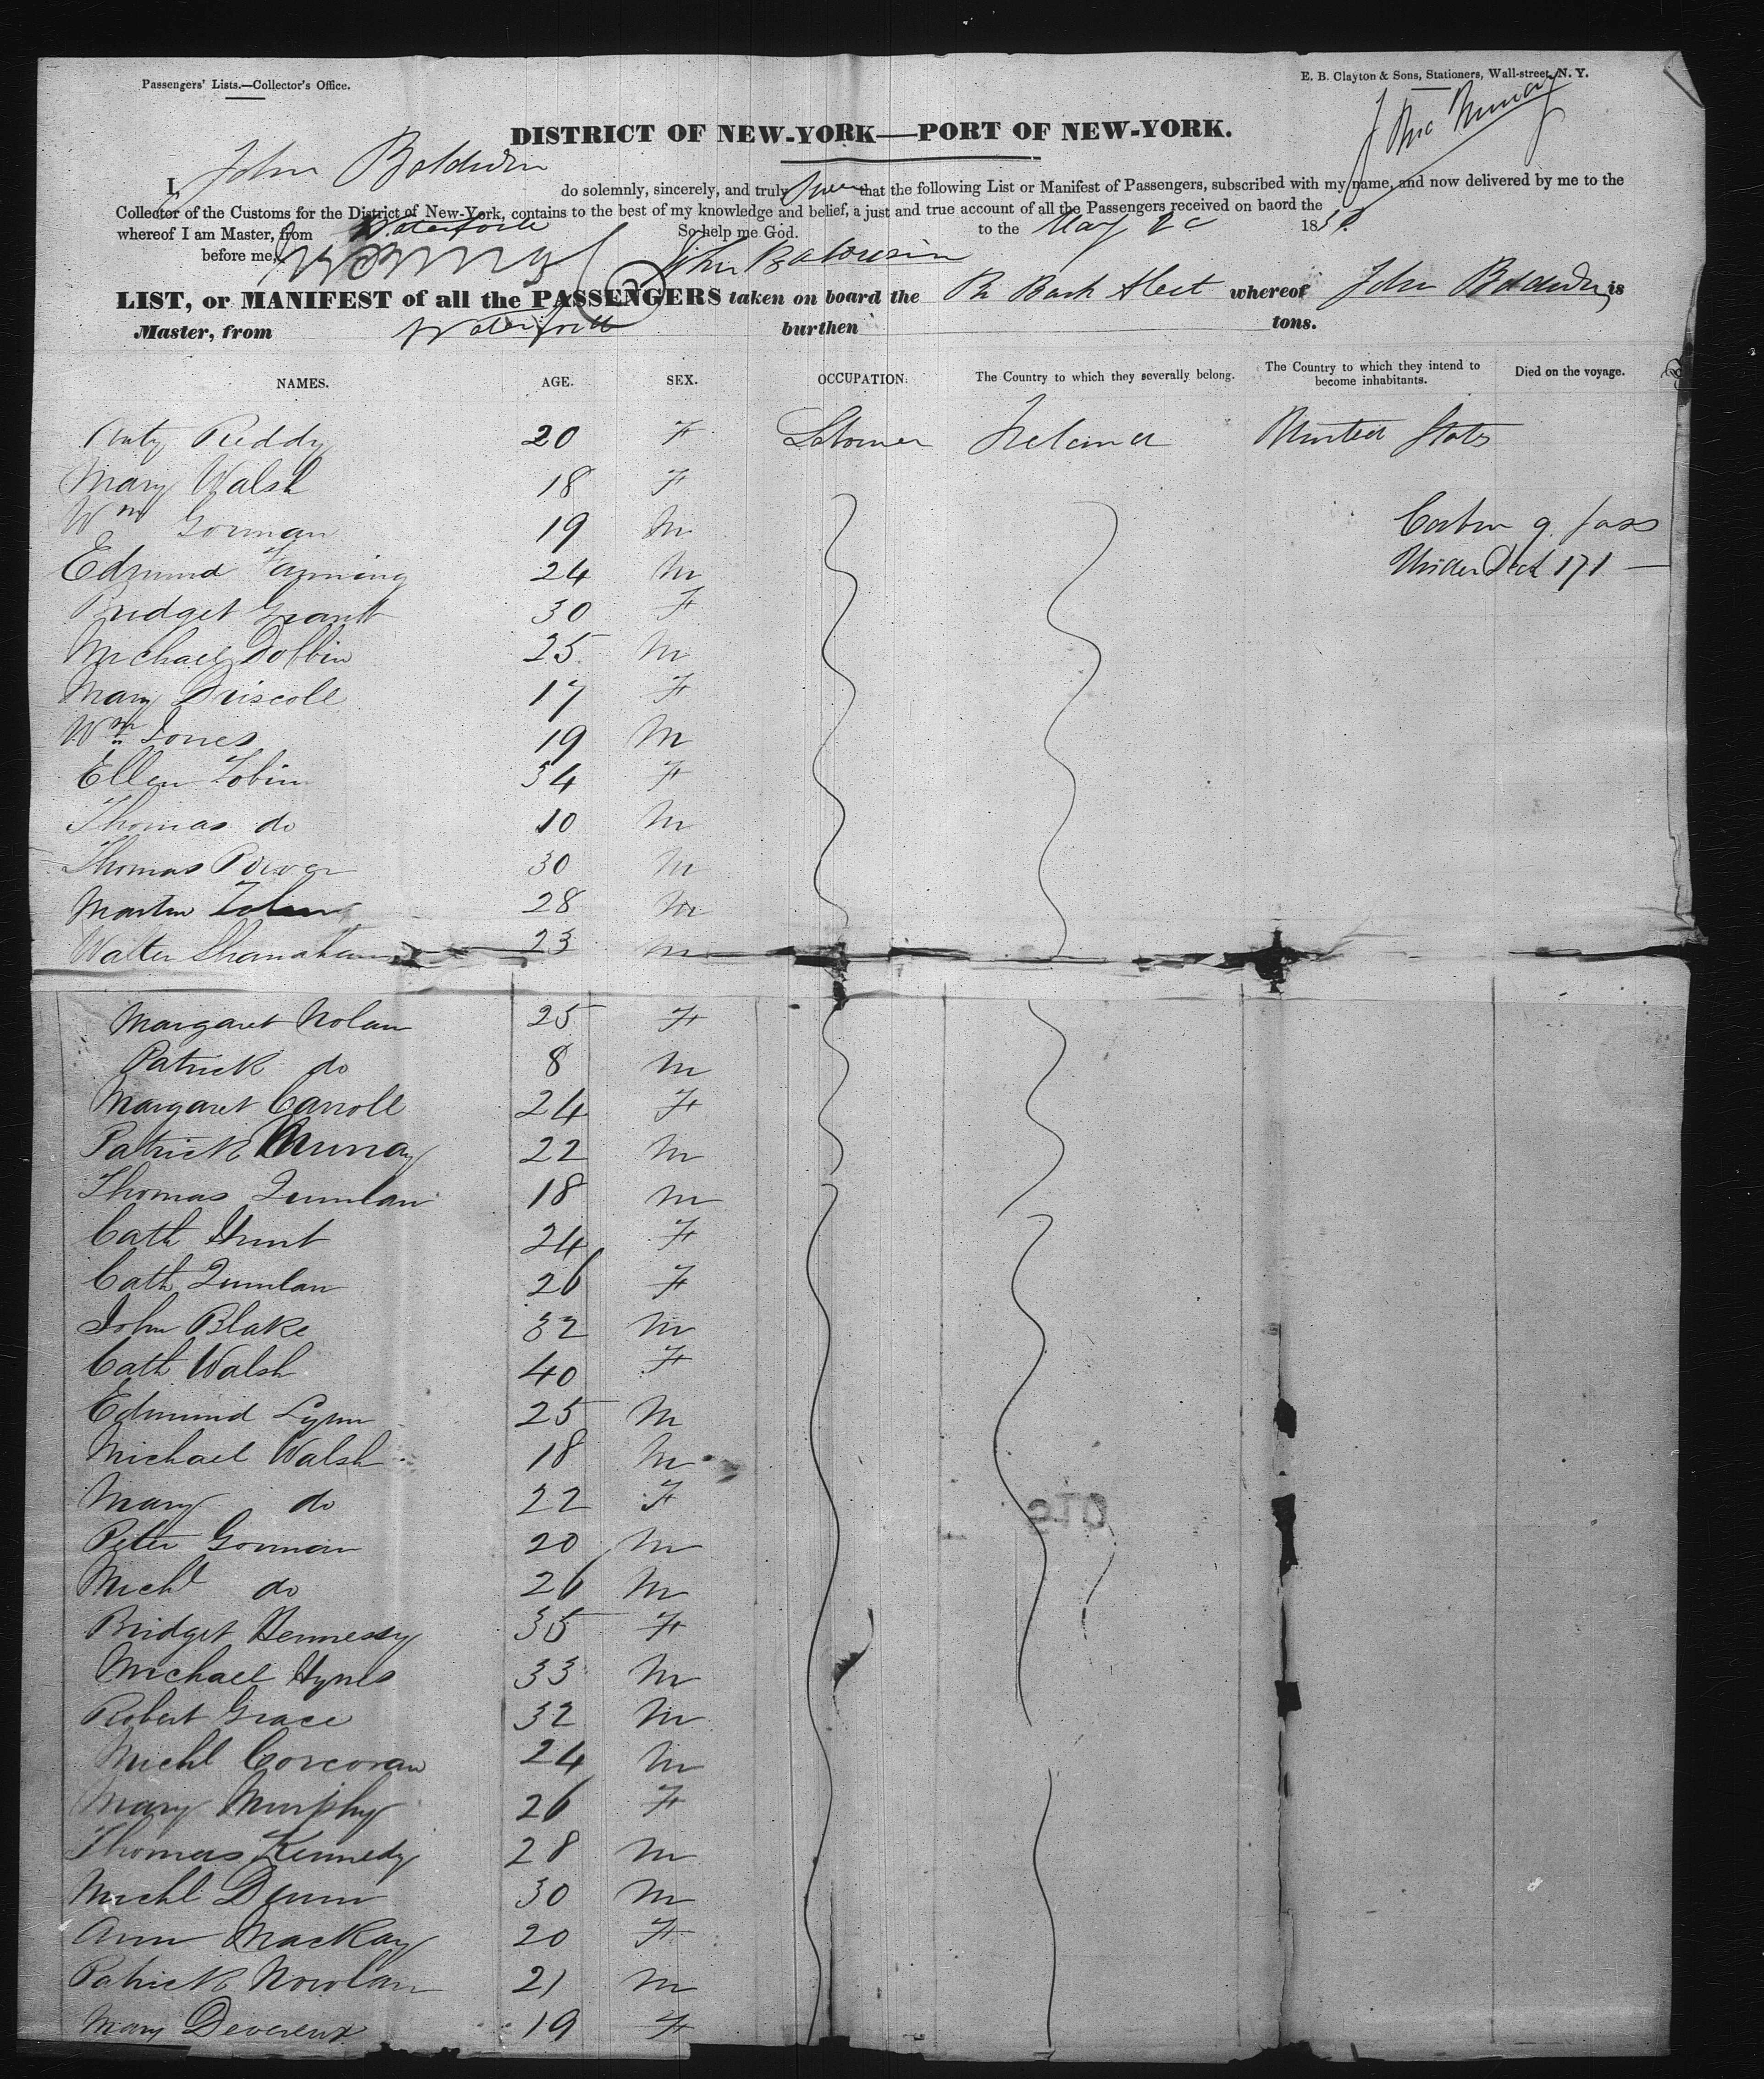 Passengers' Lists.—Collector's Office.
E. B. Clayton & Sons, Stationers, Wall-street, N. Y.
DISTRICT OF NEW-YORK—PORT OF NEW-YORK.
I, John Baldwin do solemnly, sincerely, and truly that the following List or Manifest of Passengers, subscribed with my name, and now delivered by me to the
Collector of the Customs for the District of New-York, contains to the best of my knowledge and belief, a just and true account of all the Passengers received on baord the
whereof I am Master, from Waterford So help me God. to the May 185
before me, John Baldwin
LIST, or MANIFEST of all the PASSENGERS taken on board the Br Bark whereof John Baldwin is
Master, from Waterford burthen tons.
NAMES. AGE. SEX. OCCUPATION. The Country to which they severally belong. The Country to which they intend to become inhabitants. Died on the voyage.
Reddy 20 F Laborer Ireland United States
Mary Walsh 18 F
Wm Gorman 19 M Cabin 9 pass
Edmund Fanning 24 M Under Deck 171
Bridget Grant 30 F
Michael Dobbin 25 M
Mary Driscoll 17 F
Wm Jones 19 M
Ellen Tobin 34 F
Thomas do 10 M
Thomas Power 30 M
Martin Tobin 28 M
Walter Shanahan 23 M
Margaret Nolan 25 F
Patrick do 8 M
Margaret Carroll 24 F
Patrick Murray 22 M
Thomas Quinlan 18 M
Cath Hunt 24 F
Cath Quinlan 26 F
John Blake 32 M
Cath Walsh 40 F
Edmund Lynn 25 M
Michael Walsh 18 M
Mary do 22 F
Peter Gorman 20 M
Michl do 26 M
Bridget Hennessy 35 F
Michael Hynes 33 M
Robert Grace 32 M
Michl Corcoran 24 M
Mary Murphy 26 F
Thomas Kennedy 28 M
Michl Dunn 30 M
Ann MacKay 20 F
Patrick Nowlan 21 M
Mary Devereux 19 F